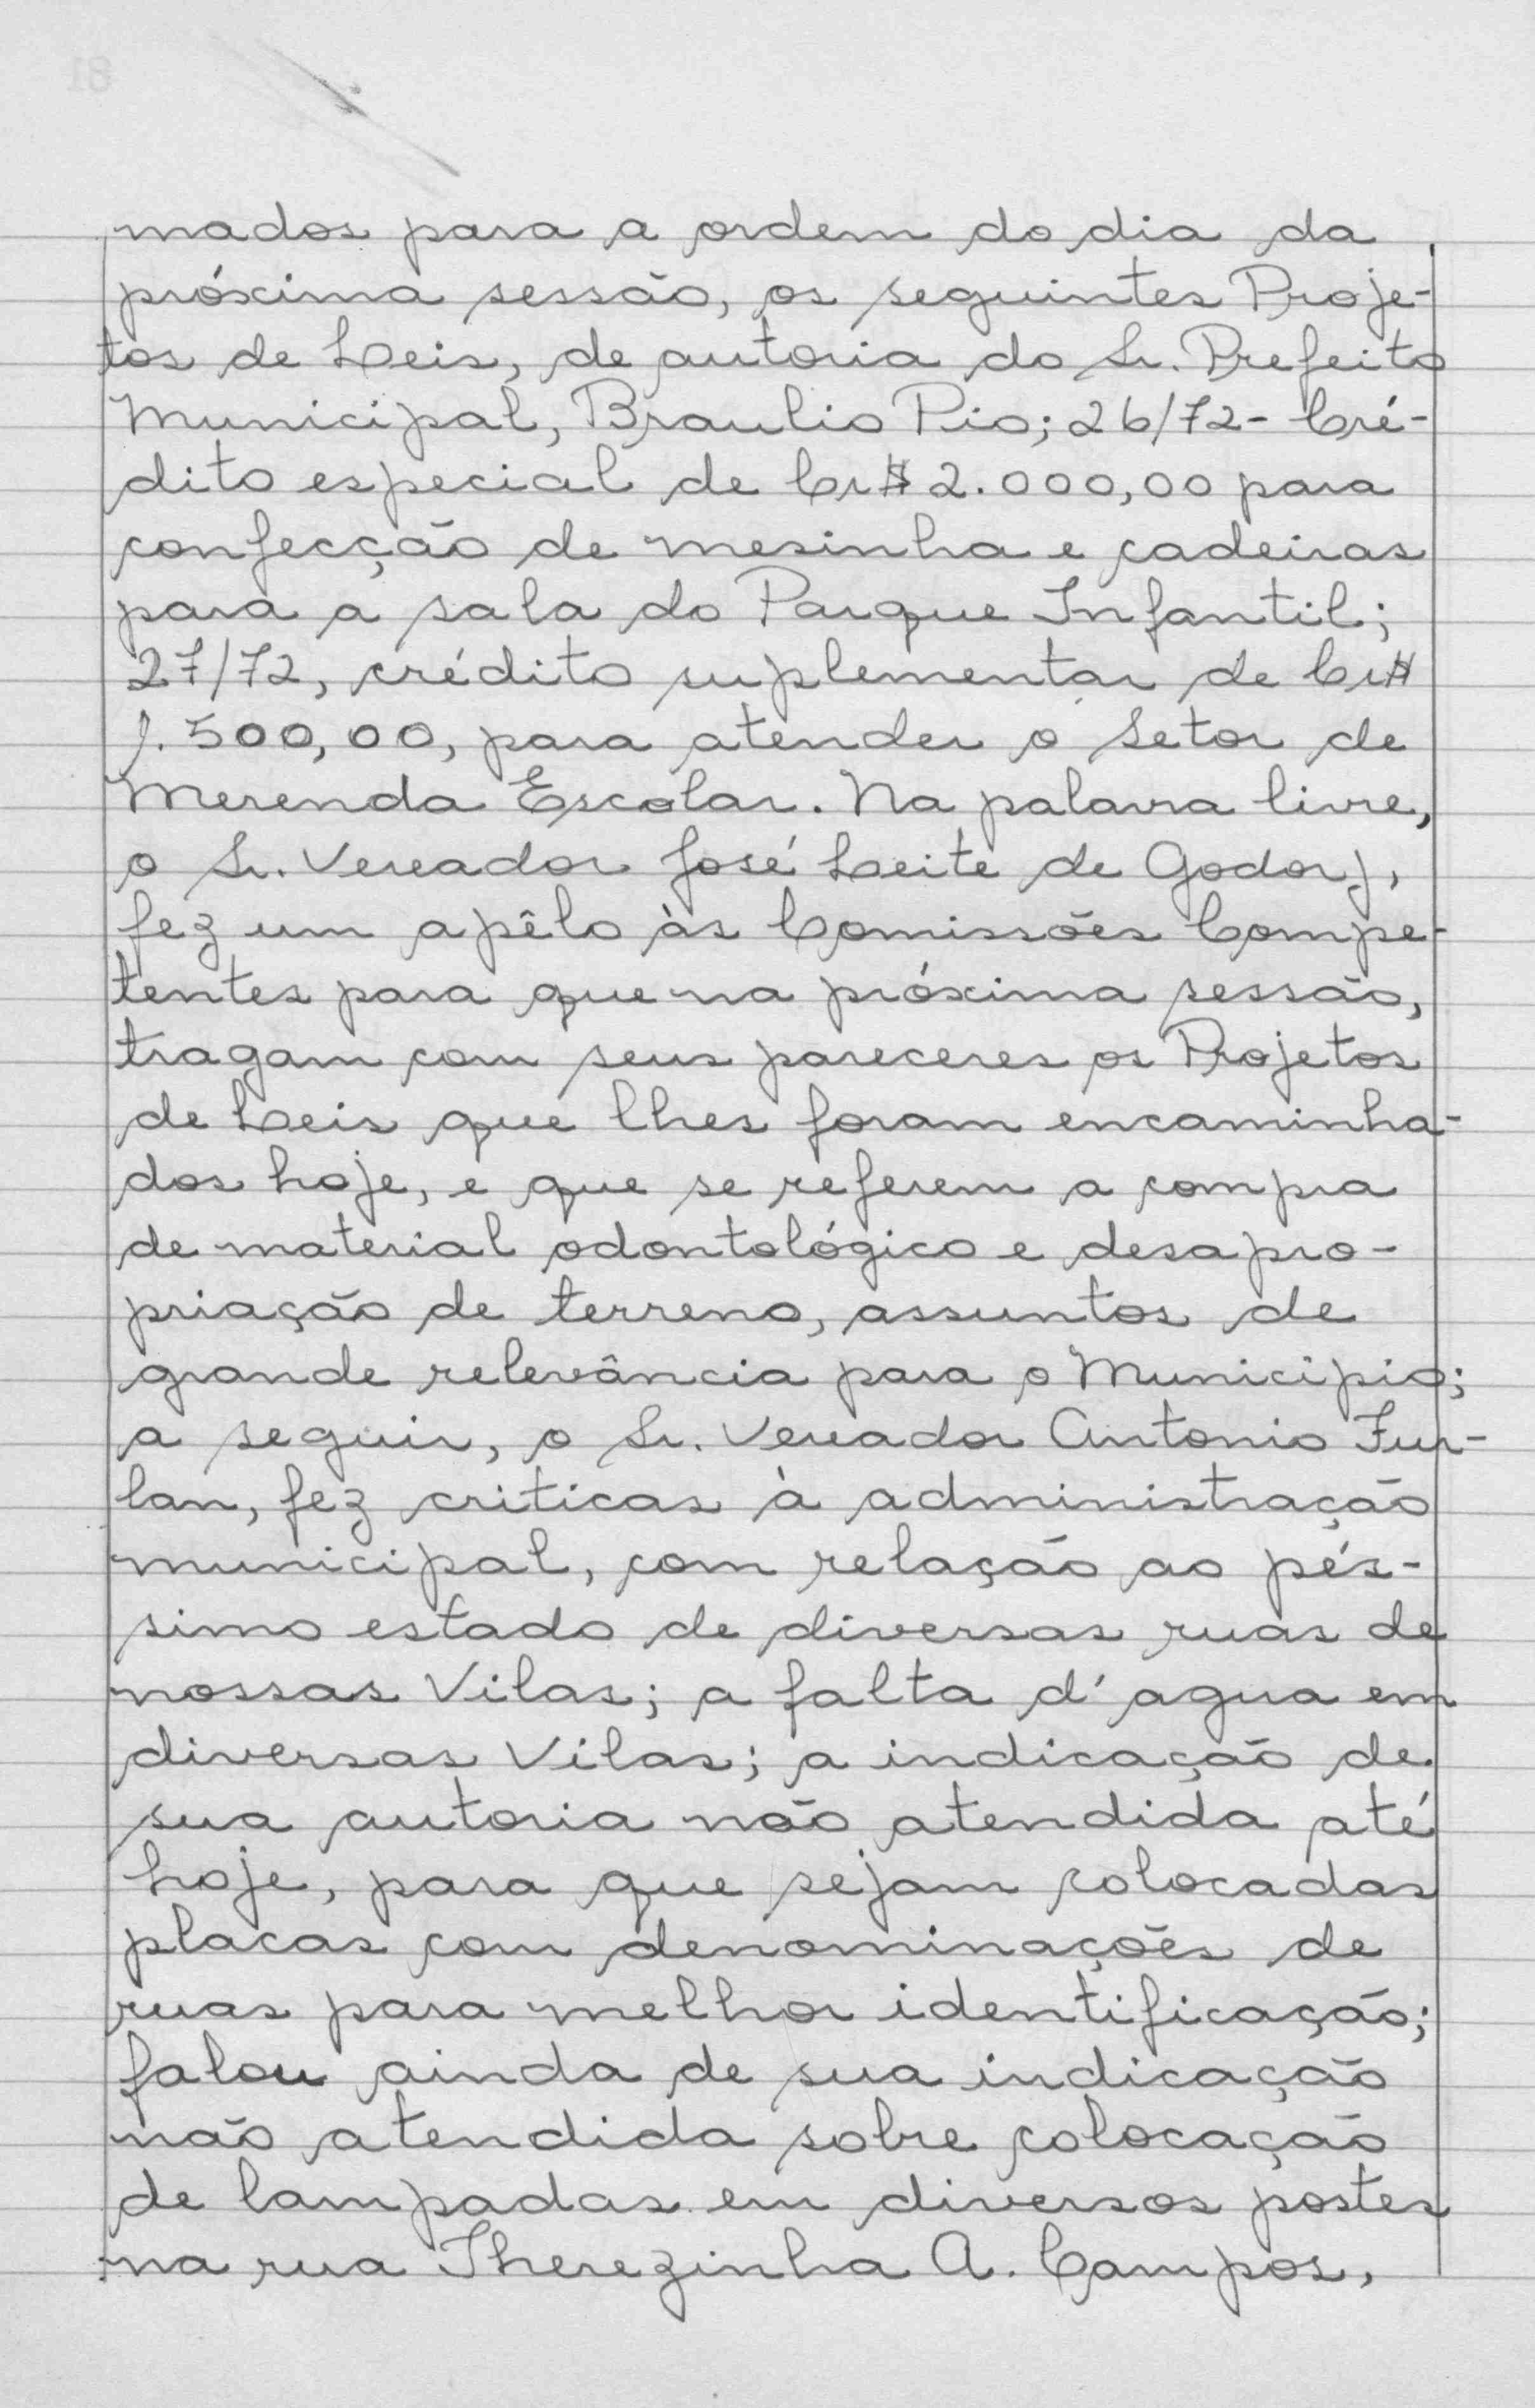 mados para a ordem do dia da
próxima sessão, os seguintes Proje-
tos de Leis, de autoria do Sr. Prefeito
Municipal, Braulio Pio; 26/72 - Cré-
dito especial de Cr$ 2.000,00 para
confecção de mesinha e cadeiras
para a sala do Parque Infantil;
27/72, crédito suplementar de Cr$
1.500,00, para atender o Setor de
Merenda Escolar. Na palavra livre,
o Sr. Vereador José Leite de Godoy,
fez um apêlo às Comissões Compe-
tentes para que na próxima sessão,
tragam com seus pareceres os Projetos
de Leis que lhes foram encaminha-
dos hoje, e que se referem a compra
de material odontológico e desapro-
priação de terreno, assuntos de
grande relevância para o Municipio;
a seguir, o Sr. Vereador Antonio Fur-
lan, fez criticas à administração
municipal, com relação ao pés-
simo estado de diversas ruas de
nossas Vilas; a falta d'agua em
diversas Vilas; a indicação de
sua autoria não atendida até
hoje, para que sejam colocadas
placas com denominações de
ruas para melhor identificação;
falou ainda de sua indicação
não atendida sobre colocação
de lampadas em diversos postes
na rua Therezinha A. Campos,